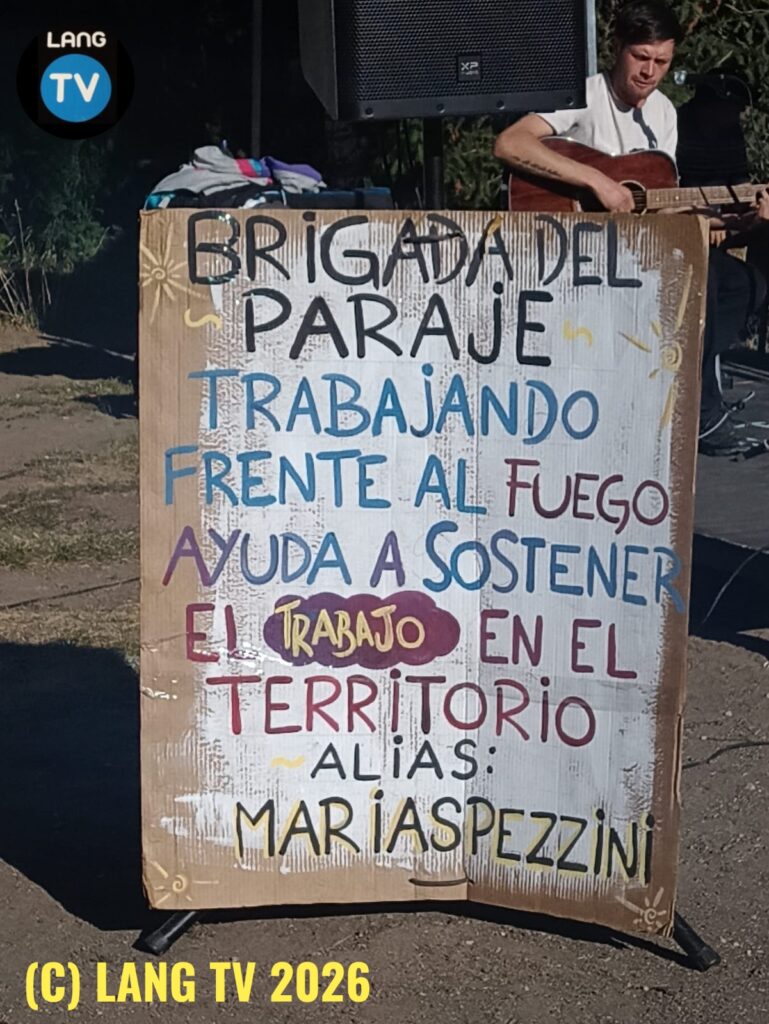 LANG
TV
XP
BRIGADA DEL
PARAJE
TRABAJANDO
FRENTE AL FUEGO
AYUDA A SOSTENER
EL TRABAJO EN EL
TERRITORIO
~ALIAS:
MARIASPEZZINI
(C) LANG TV 2026